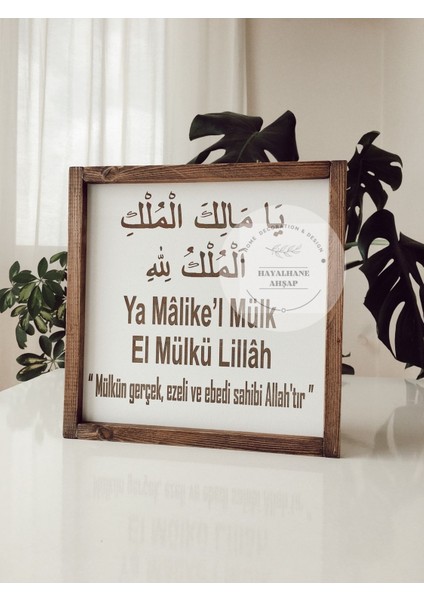 يَا مَالِكَ الْمُلْكِ
اَلْمُلْكُ لِلّٰهِ
HOME DECORATION & DESIGN
HAYALHANE
AHŞAP
Ya Mâlike'l Mülk
El Mülkü Lillâh
“ Mülkün gerçek, ezeli ve ebedi sahibi Allah'tır ”